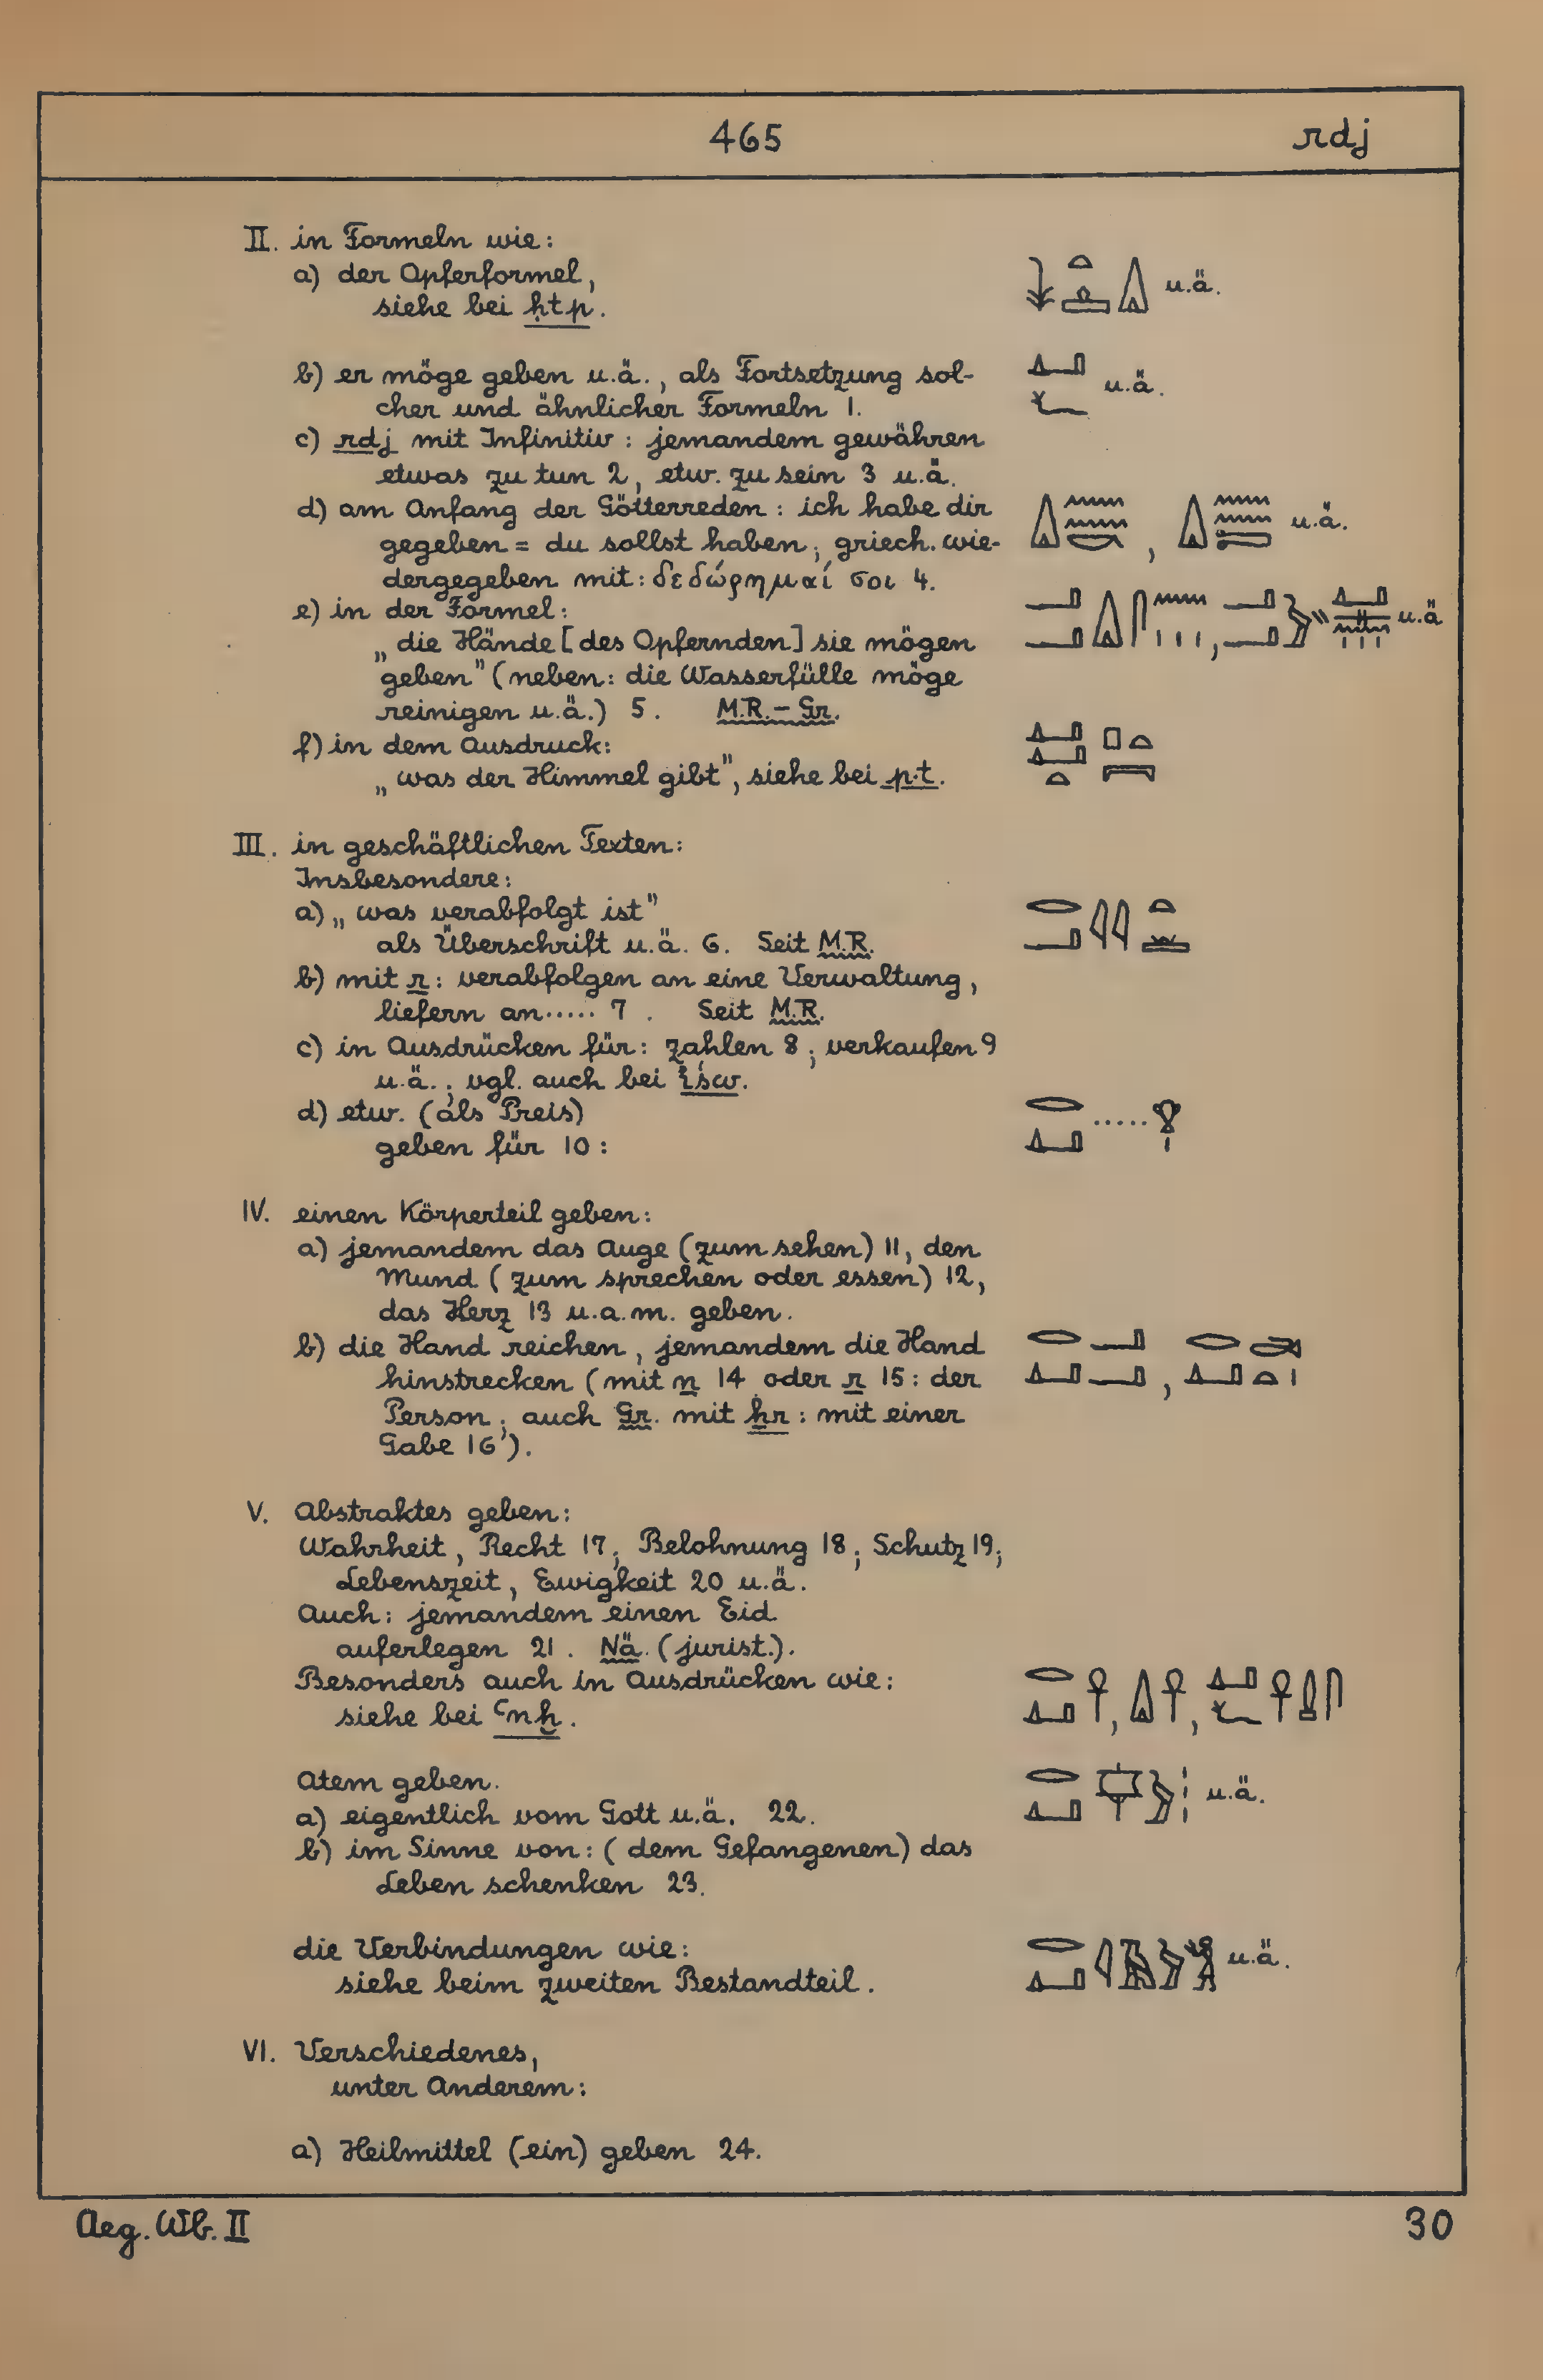 465 rdj
II. in Formeln wie:
a) der Opferformel,
siehe bei ḥtp. u.ä.
b) er möge geben u.ä., als Fortsetzung sol-
u.ä.
cher und ähnlicher Formeln 1.
c) rdj mit Infinitiv: jemandem gewähren
etwas zu tun 2, etw. zu sein 3 u.ä.
d) am Anfang der Götterreden: ich habe dir
, u.ä.
gegeben = du sollst haben; griech. wie-
dergegeben mit: δεδώρημαί σοι 4.
e) in der Formel:
, u.ä
„die Hände [des Opfernden] sie mögen
geben" (neben: die Wasserfülle möge
reinigen u.ä.) 5. M.R.–Gr.
f) in dem Ausdruck:
„was der Himmel gibt", siehe bei p.t.
III. in geschäftlichen Texten:
Insbesondere:
a) „was verabfolgt ist"
als Überschrift u.ä. 6. Seit M.R.
b) mit r: verabfolgen an eine Verwaltung,
liefern an..... 7. Seit M.R.
c) in Ausdrücken für: zahlen 8; verkaufen 9
u.ä.; vgl. auch bei iśw.
d) etw. (als Preis)
.....
geben für 10:
IV. einen Körperteil geben:
a) jemandem das Auge (zum sehen) 11, den
Mund (zum sprechen oder essen) 12,
das Herz 13 u.a.m. geben.
b) die Hand reichen, jemandem die Hand
hinstrecken (mit n 14 oder r 15: der
Person; auch Gr. mit ẖr: mit einer
Gabe 16).
V. Abstraktes geben:
Wahrheit, Recht 17; Belohnung 18; Schutz 19;
Lebenszeit, Ewigkeit 20 u.ä.
Auch: jemandem einen Eid
auferlegen 21. Nä. (jurist.).
Besonders auch in Ausdrücken wie:
siehe bei ꜥnḫ.
Atem geben.
u.ä.
a) eigentlich vom Gott u.ä. 22.
b) im Sinne von: (dem Gefangenen) das
Leben schenken 23.
die Verbindungen wie:
u.ä.
siehe beim zweiten Bestandteil.
VI. Verschiedenes,
unter Anderem:
a) Heilmittel (ein) geben 24.
Aeg. Wb. II 30